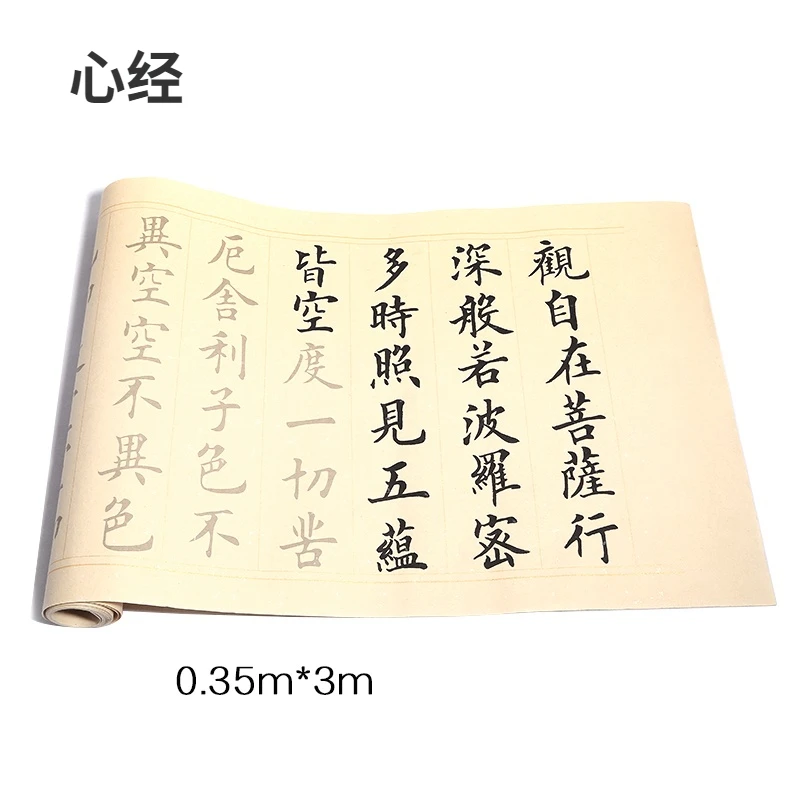 心经
觀自在菩薩行
深般若波羅宻
多時照見五蘊
皆空度一切苦
厄舍利子色不
異空空不異色
0.35m*3m